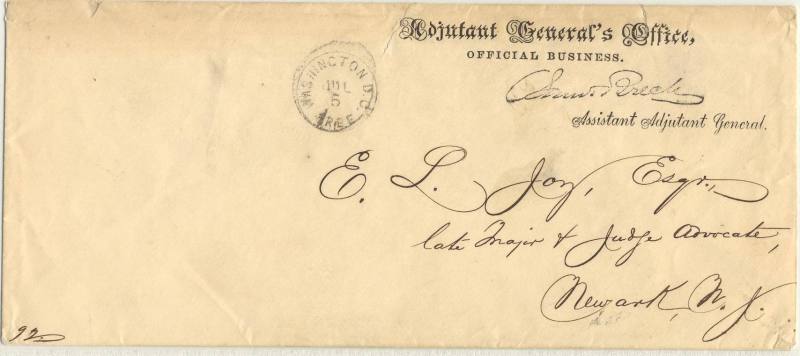 Adjutant General's Office,
OFFICIAL BUSINESS.
WASHINGTON D.C.
JUL
5
FREE
Assistant Adjutant General.
E. L. Joy, Esqr.,
late Major & Judge Advocate,
Newark, N. J.
92